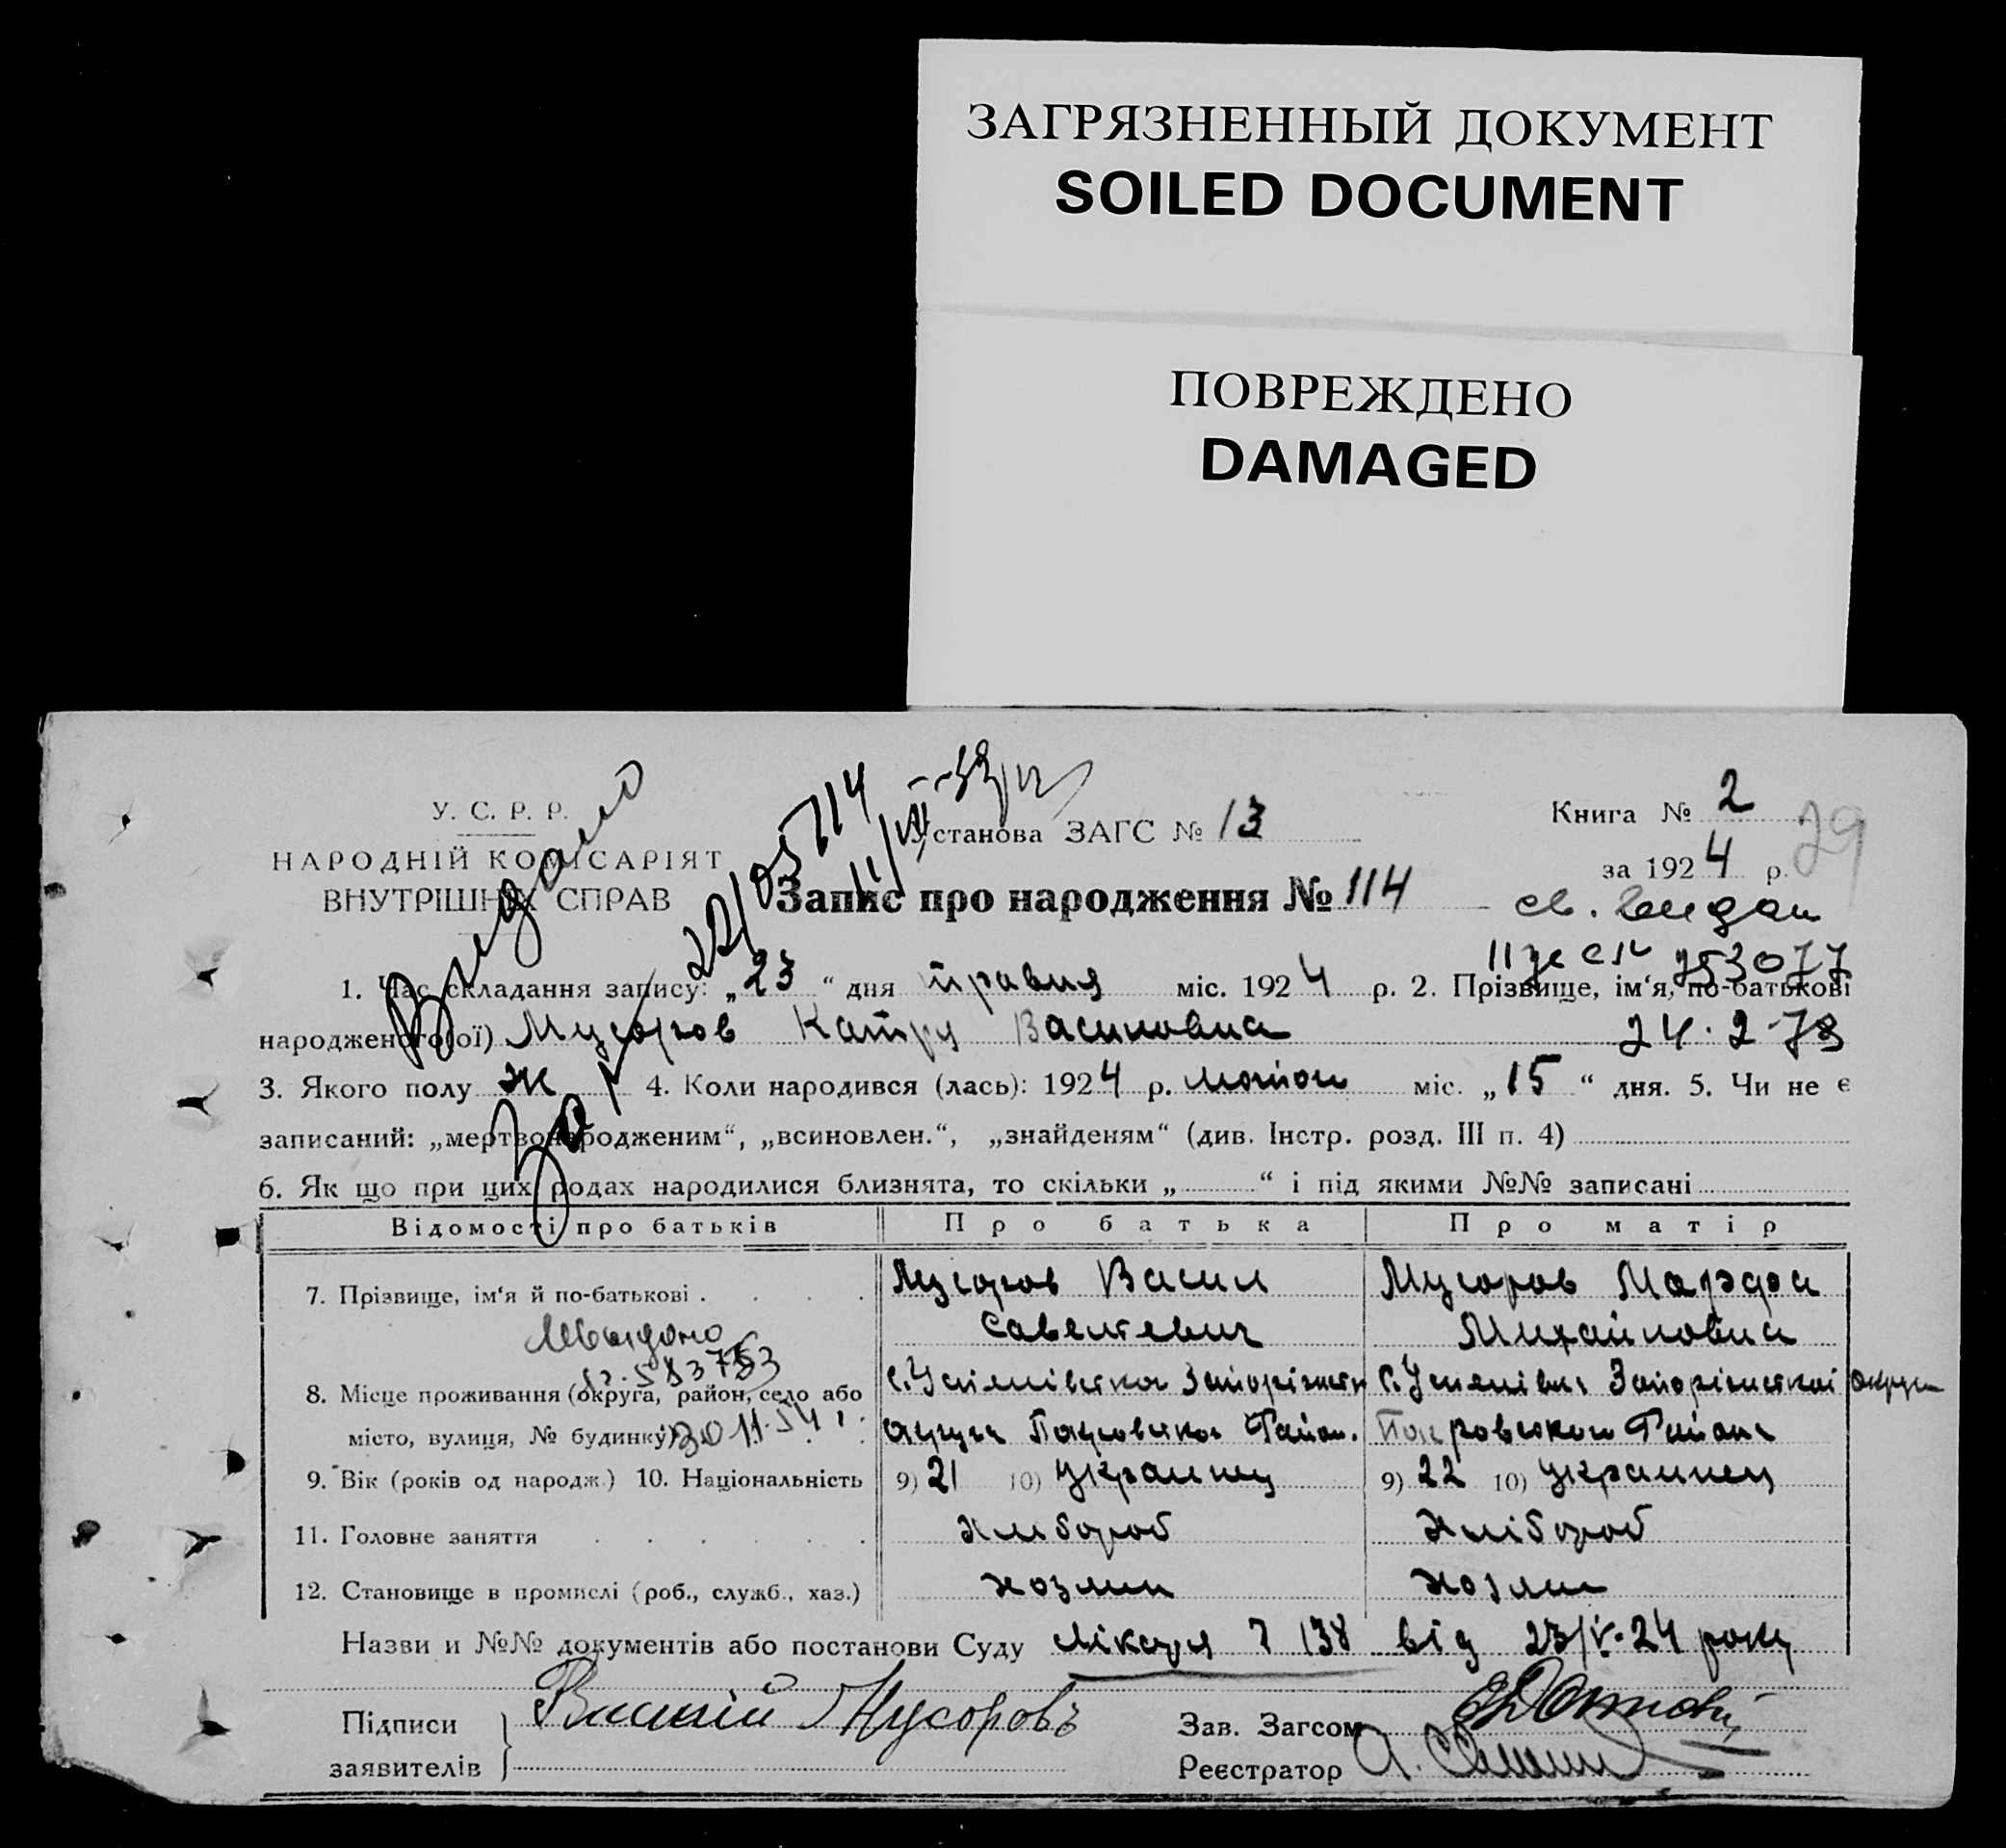 ЗАГРЯЗНЕННЫЙ ДОКУМЕНТ
SOILED DOCUMENT
ПОВРЕЖДЕНО
DAMAGED
У. С. Р. Р.
НАРОДНІЙ КОМІСАРІЯТ
ВНУТРІШНІХ СПРАВ
Видано
22/05714
Установа ЗАГС № 13
Книга № 2
за 1924 р.
29
Запис про народження № 114
св. видан
753077
1. Час складання запису: „23“ дня травня міс. 1924 р. 2. Прізвище, ім‘я, по-батькові
народженого(ої) Мусоров Катру Василовна
24.2.78
3. Якого полу ж 4. Коли народився (лась): 1924 р. міс. „15“ дня. 5. Чи не є
записаний: „мертвонародженим“, „всиновлен.“, „знайденям“ (див. Інстр. розд. III п. 4)
6. Як що при цих родах народилися близнята, то скільки „ “ і під якими №№ записані
Відомості про батьків Про батька Про матір
7. Прізвище, ім‘я й по-батькові Мусоров Васил Мусоров Марфа
Савелтевич Михайловна
8. Місце проживання (округа, район, село або с. Успінівка Запорізької с. Успінівка Запорізської округи
місто, вулиця, № будинку) округи Покровского Район. Покровского Района
9. Вік (років од народж.) 10. Національність 9) 21 10) Украинец 9) 22 10) Украинец
11. Головне заняття хлібороб хлібороб
12. Становище в промислі (роб., служб., хаз.) хозяин хозяин
Назви и №№ документів або постанови Суду Лікаря № 138 від 23/V-24 року
Підписи заявителів Василій Мусоровъ
Зав. Загсом
Реєстратор